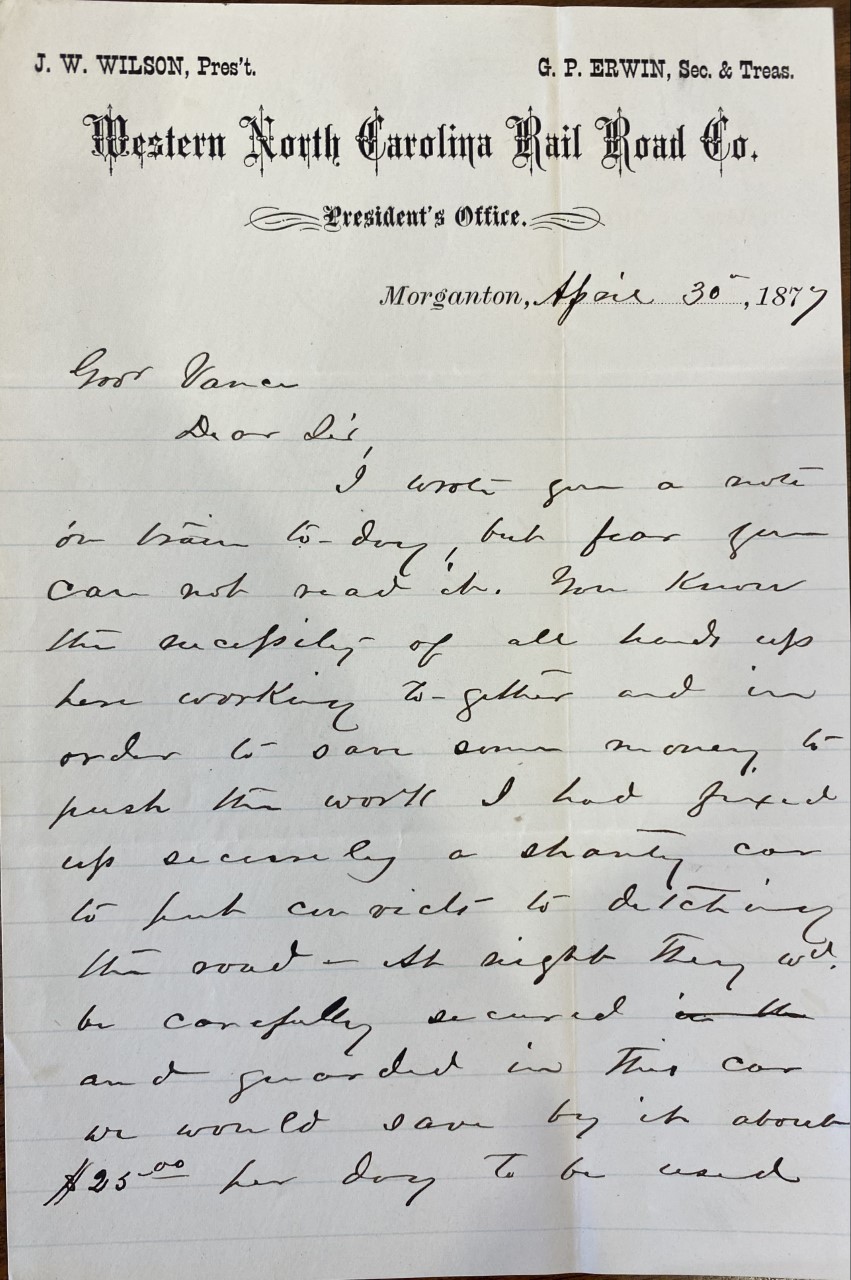 J. W. WILSON, Pres't.
G. P. ERWIN, Sec. & Treas.
Western North Carolina Rail Road Co.
President's Office.
Morganton, April 30", 1877
Govr Vance
Dear Sir,
I wrote you a note
on train to-day, but fear you
can not read it. You know
the necessity of all hands up
here working to-gether and in
order to save some money to
push the work I had fixed
up securely a shanty car
to put convicts to ditching
the road - At night they wd.
be carefully secured in the
and guarded in this car
we would save by it about
$25.00 per day to be used